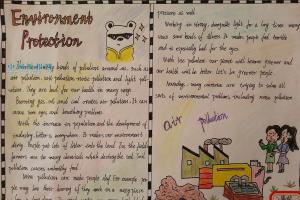 Environment
Protection
kinds of pollution around us, such as
air pollution, soil pollution, noise pollution and light pol-
lution. They are bad for our health in many ways.
Burning gas, oil and coal creates air pollution. It can
cause sore eyes and breathing problems.
With the increase in population and the development of
industry, litter is everywhere. It makes our environment
dirty. People put lots of litter into the land. In the field
farmers use too many chemicals which destroy the soil. Soil
pollution causes unhealthy food.
Noise pollution can make people deaf. For example, peo-
ple may lose their hearing if they work in a noisy place
precious as well.
Working in strong, changeable light for a long time may
cause some kinds of illness. It makes people feel terrible
and is especially bad for the eyes.
With less pollution, our planet will become greener and
our health will be better. Let's be greener people.
Nowadays, many countries are trying to solve all
sorts of environmental problem, including noise pollution
air pollution